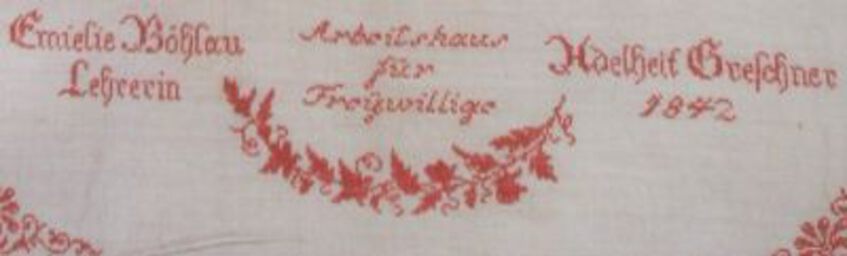 Emielie Böhlau
Lehrerin
Arbeitshaus
für
Freiwillige
Adelheit Greschner
1842